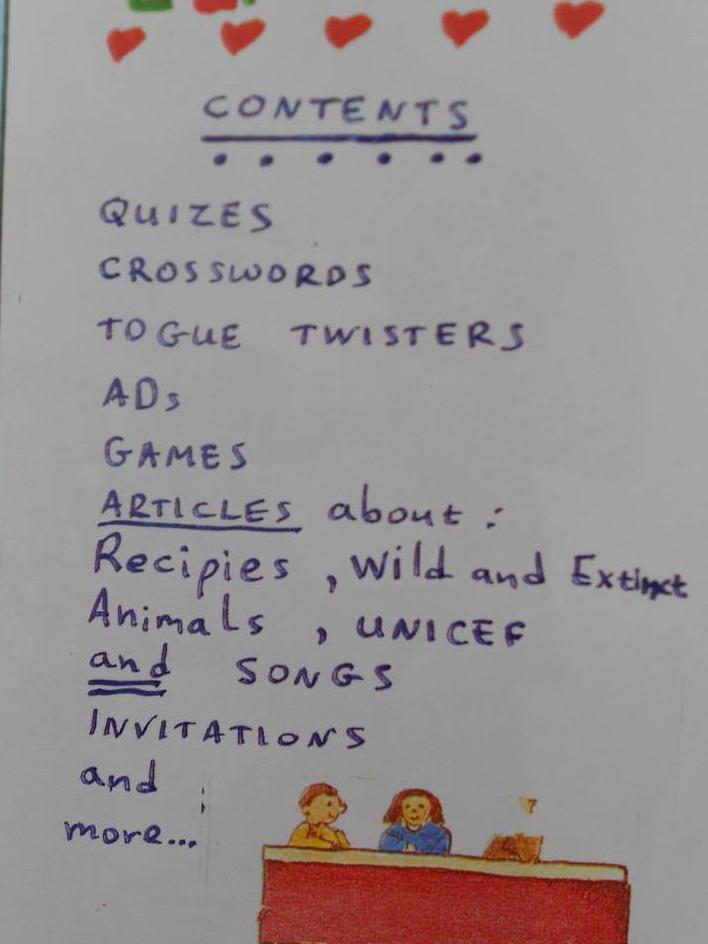 CONTENTS
QUIZES
CROSSWORDS
TOGUE TWISTERS
ADs
GAMES
ARTICLES about :
Recipies , Wild and Extinct
Animals , UNICEF
and SONGS
INVITATIONS
and
more...